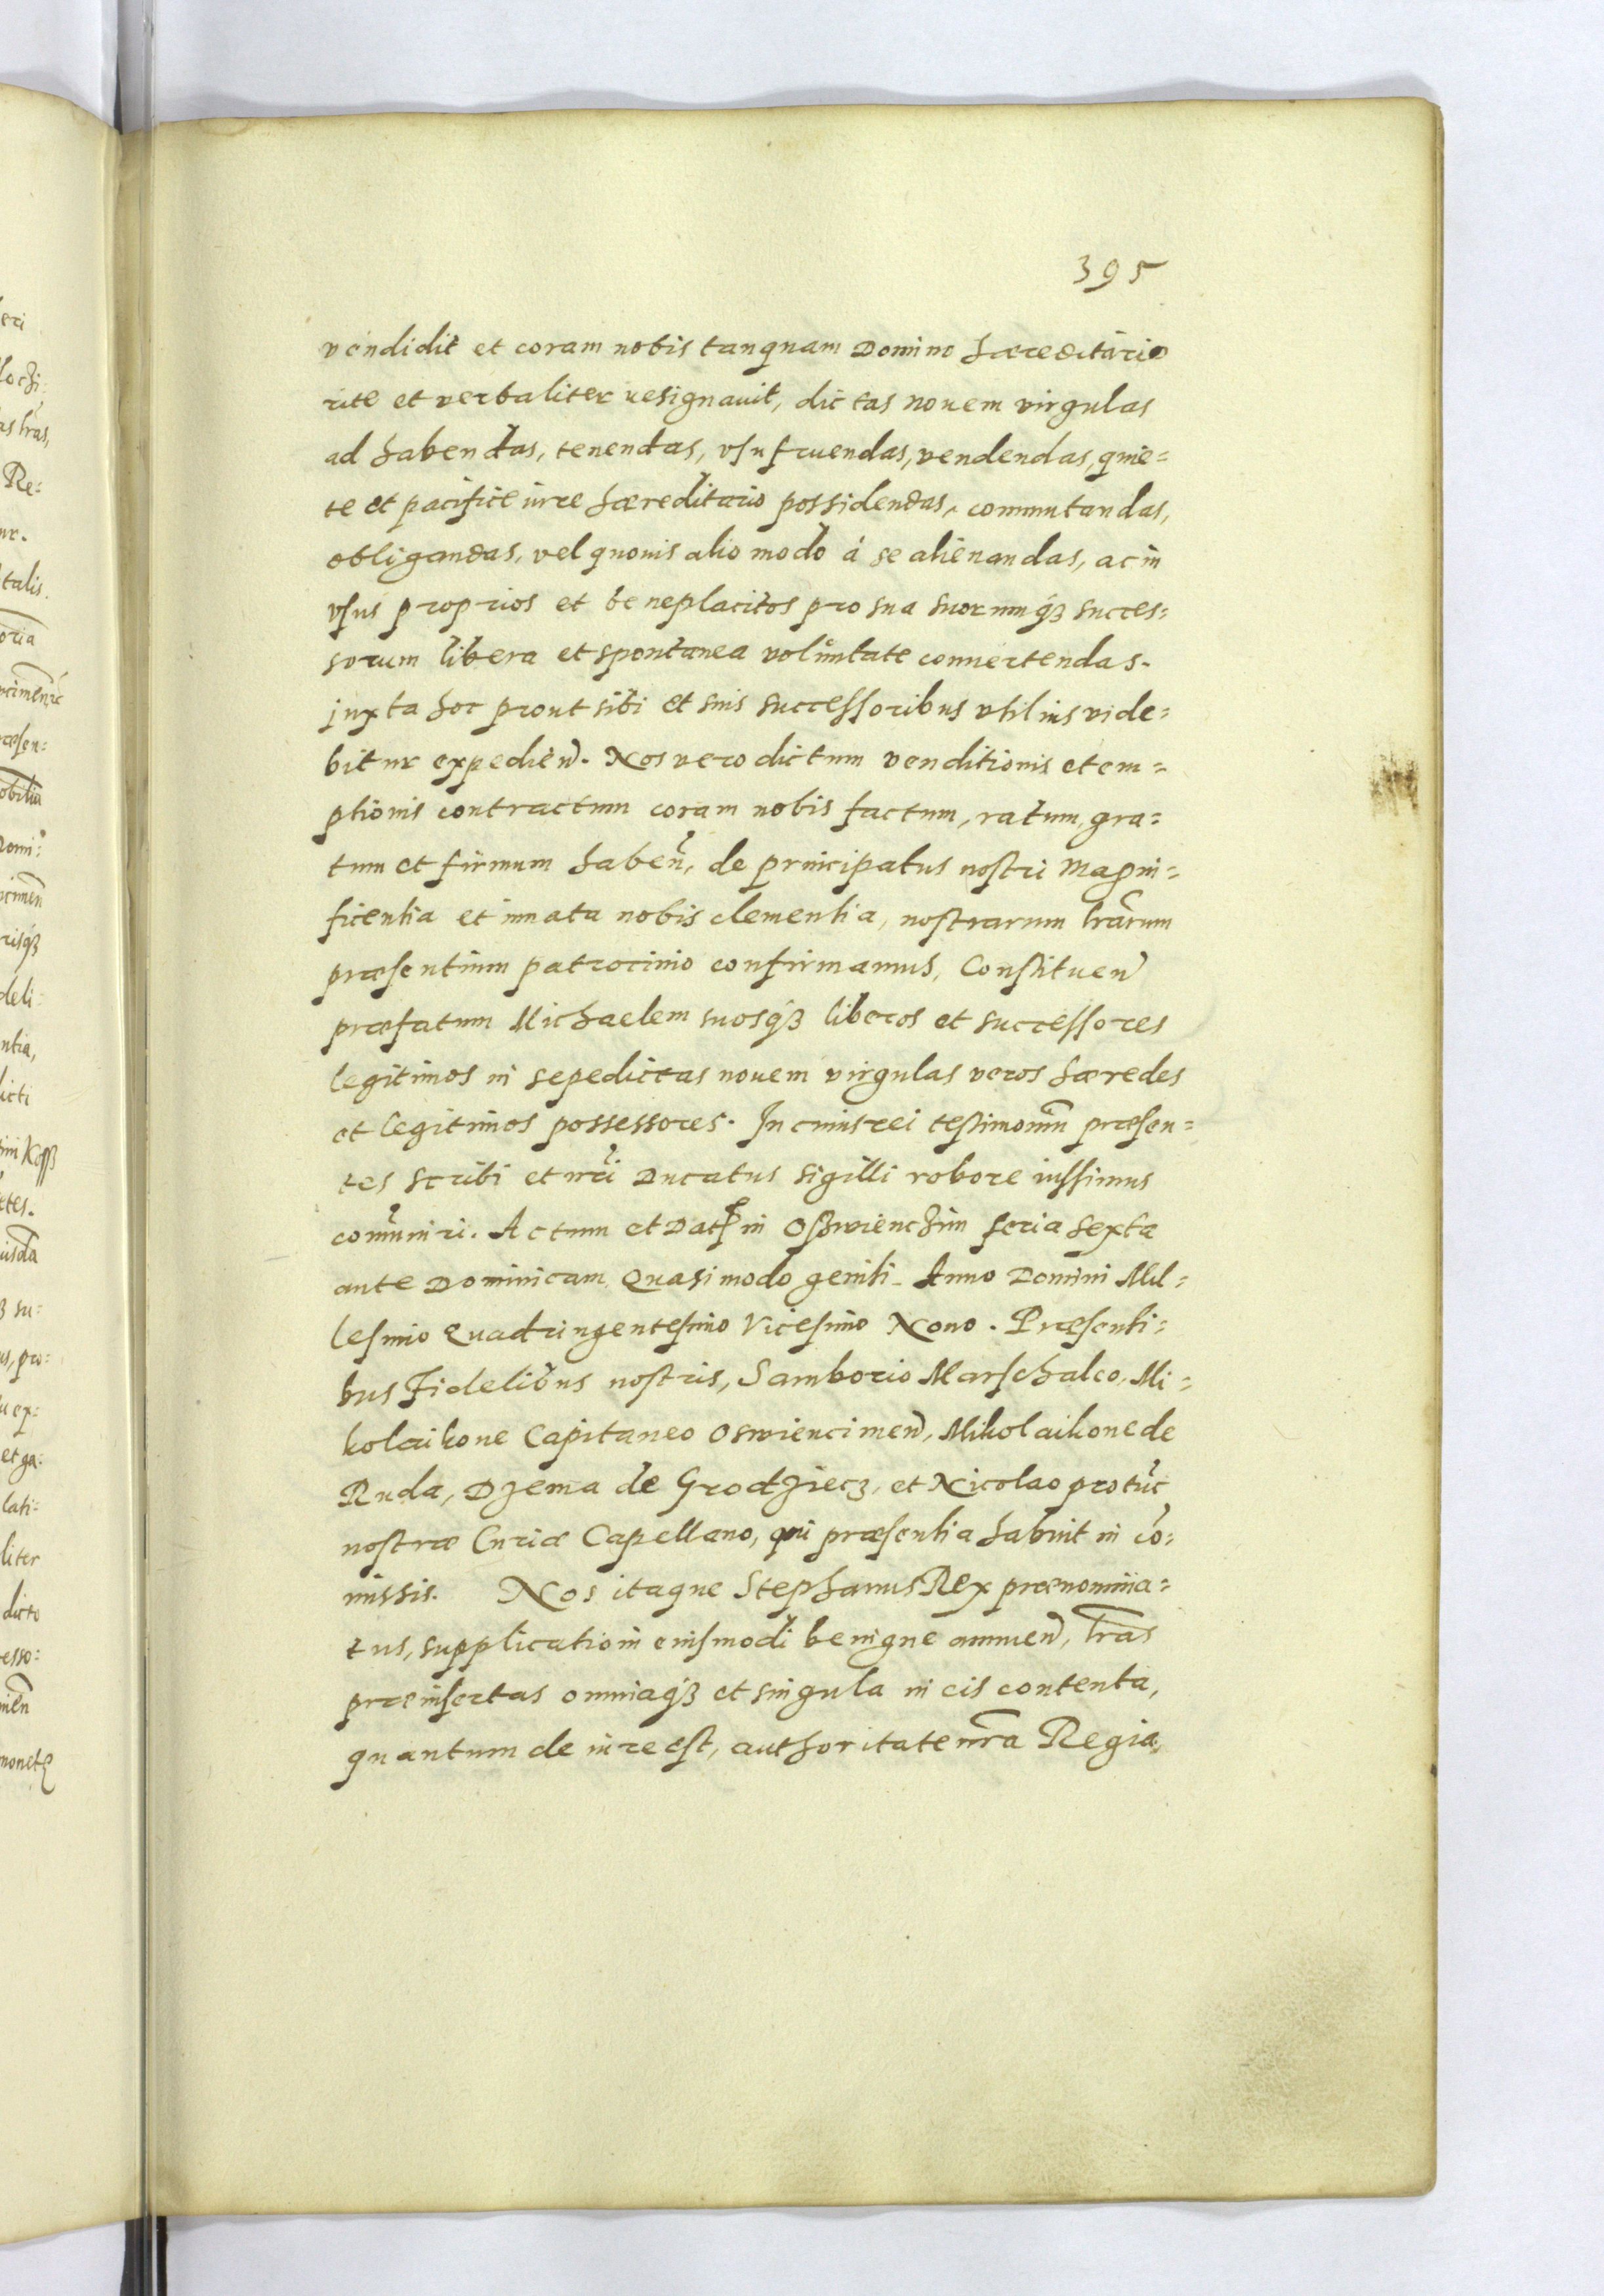 395
vendidit et coram nobis tanquam Domino hæreditario
rite et verbaliter resignauit, dictas nouem virgulas
ad habendas, tenendas, vsufruendas, vendendas, quie=
te et pacifice iure hæreditario possidendas, commutandas,
obligandas, vel quouis alio modo á se alienandas, ac in
vsus proprios et beneplacitos pro sua suorumq́ꝫ succes=
sorum libera et spontanea voluntate conuertendas.
juxta hoc prout sibi et suis successoribus vtilius vide=
bitur expedieñ. Nos vero dictum venditionis et em=
ptionis contractum coram nobis factum, ratum, gra=
tum et firmum habeñ, de principatus nostri Magni=
ficentia et innata nobis clementia, nostrarum lr̃arum
præsentium patrocinio confirmamus, Constitueñ
præfatum Michaelem suosq́ꝫ liberos et successores
legitimos in sepedictas nouem virgulas veros hæredes
et legitimos possessores. In cuius rei testimoniũ præsen=
tes scribi et nr̃i Ducatus sigilli robore iussimus
com̃uniri. Actum et Datꝭ in Osswienczim feria sexta
ante Dominicam Quasi modo geniti. Anno Domini Mil=
lesimo Quadringentesimo Vicesimo Nono. Præsenti=
bus Fidelibus nostris, Samborio Marschalco, Mi=
kolaikone Capitaneo Oswiencimeñ, Mikolaikone de
Ruda, Dzema de Grodziecz, et Nicolao pro tũc
nostræ Curiæ Capellano, qui præsentia habuit in cõ=
missis. Nos itaque Stephanus Rex prænomina=
tus, supplicationi eiusmodi benigne annueñ, lr̃as
præinsertas omniaq́ꝫ et singula in eis contenta,
quantum de iure est, authoritate nr̃a Regia,